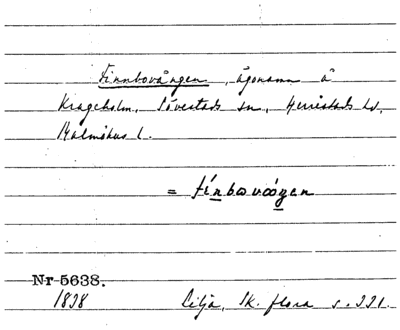 Finnbovången, ägonamn å
Krageholm, Sövestads sn, Herrestads hd,
Malmöhus l.
= finbovågen
Nr 5638.
1838 Lilja, Sk. flora s. 221.